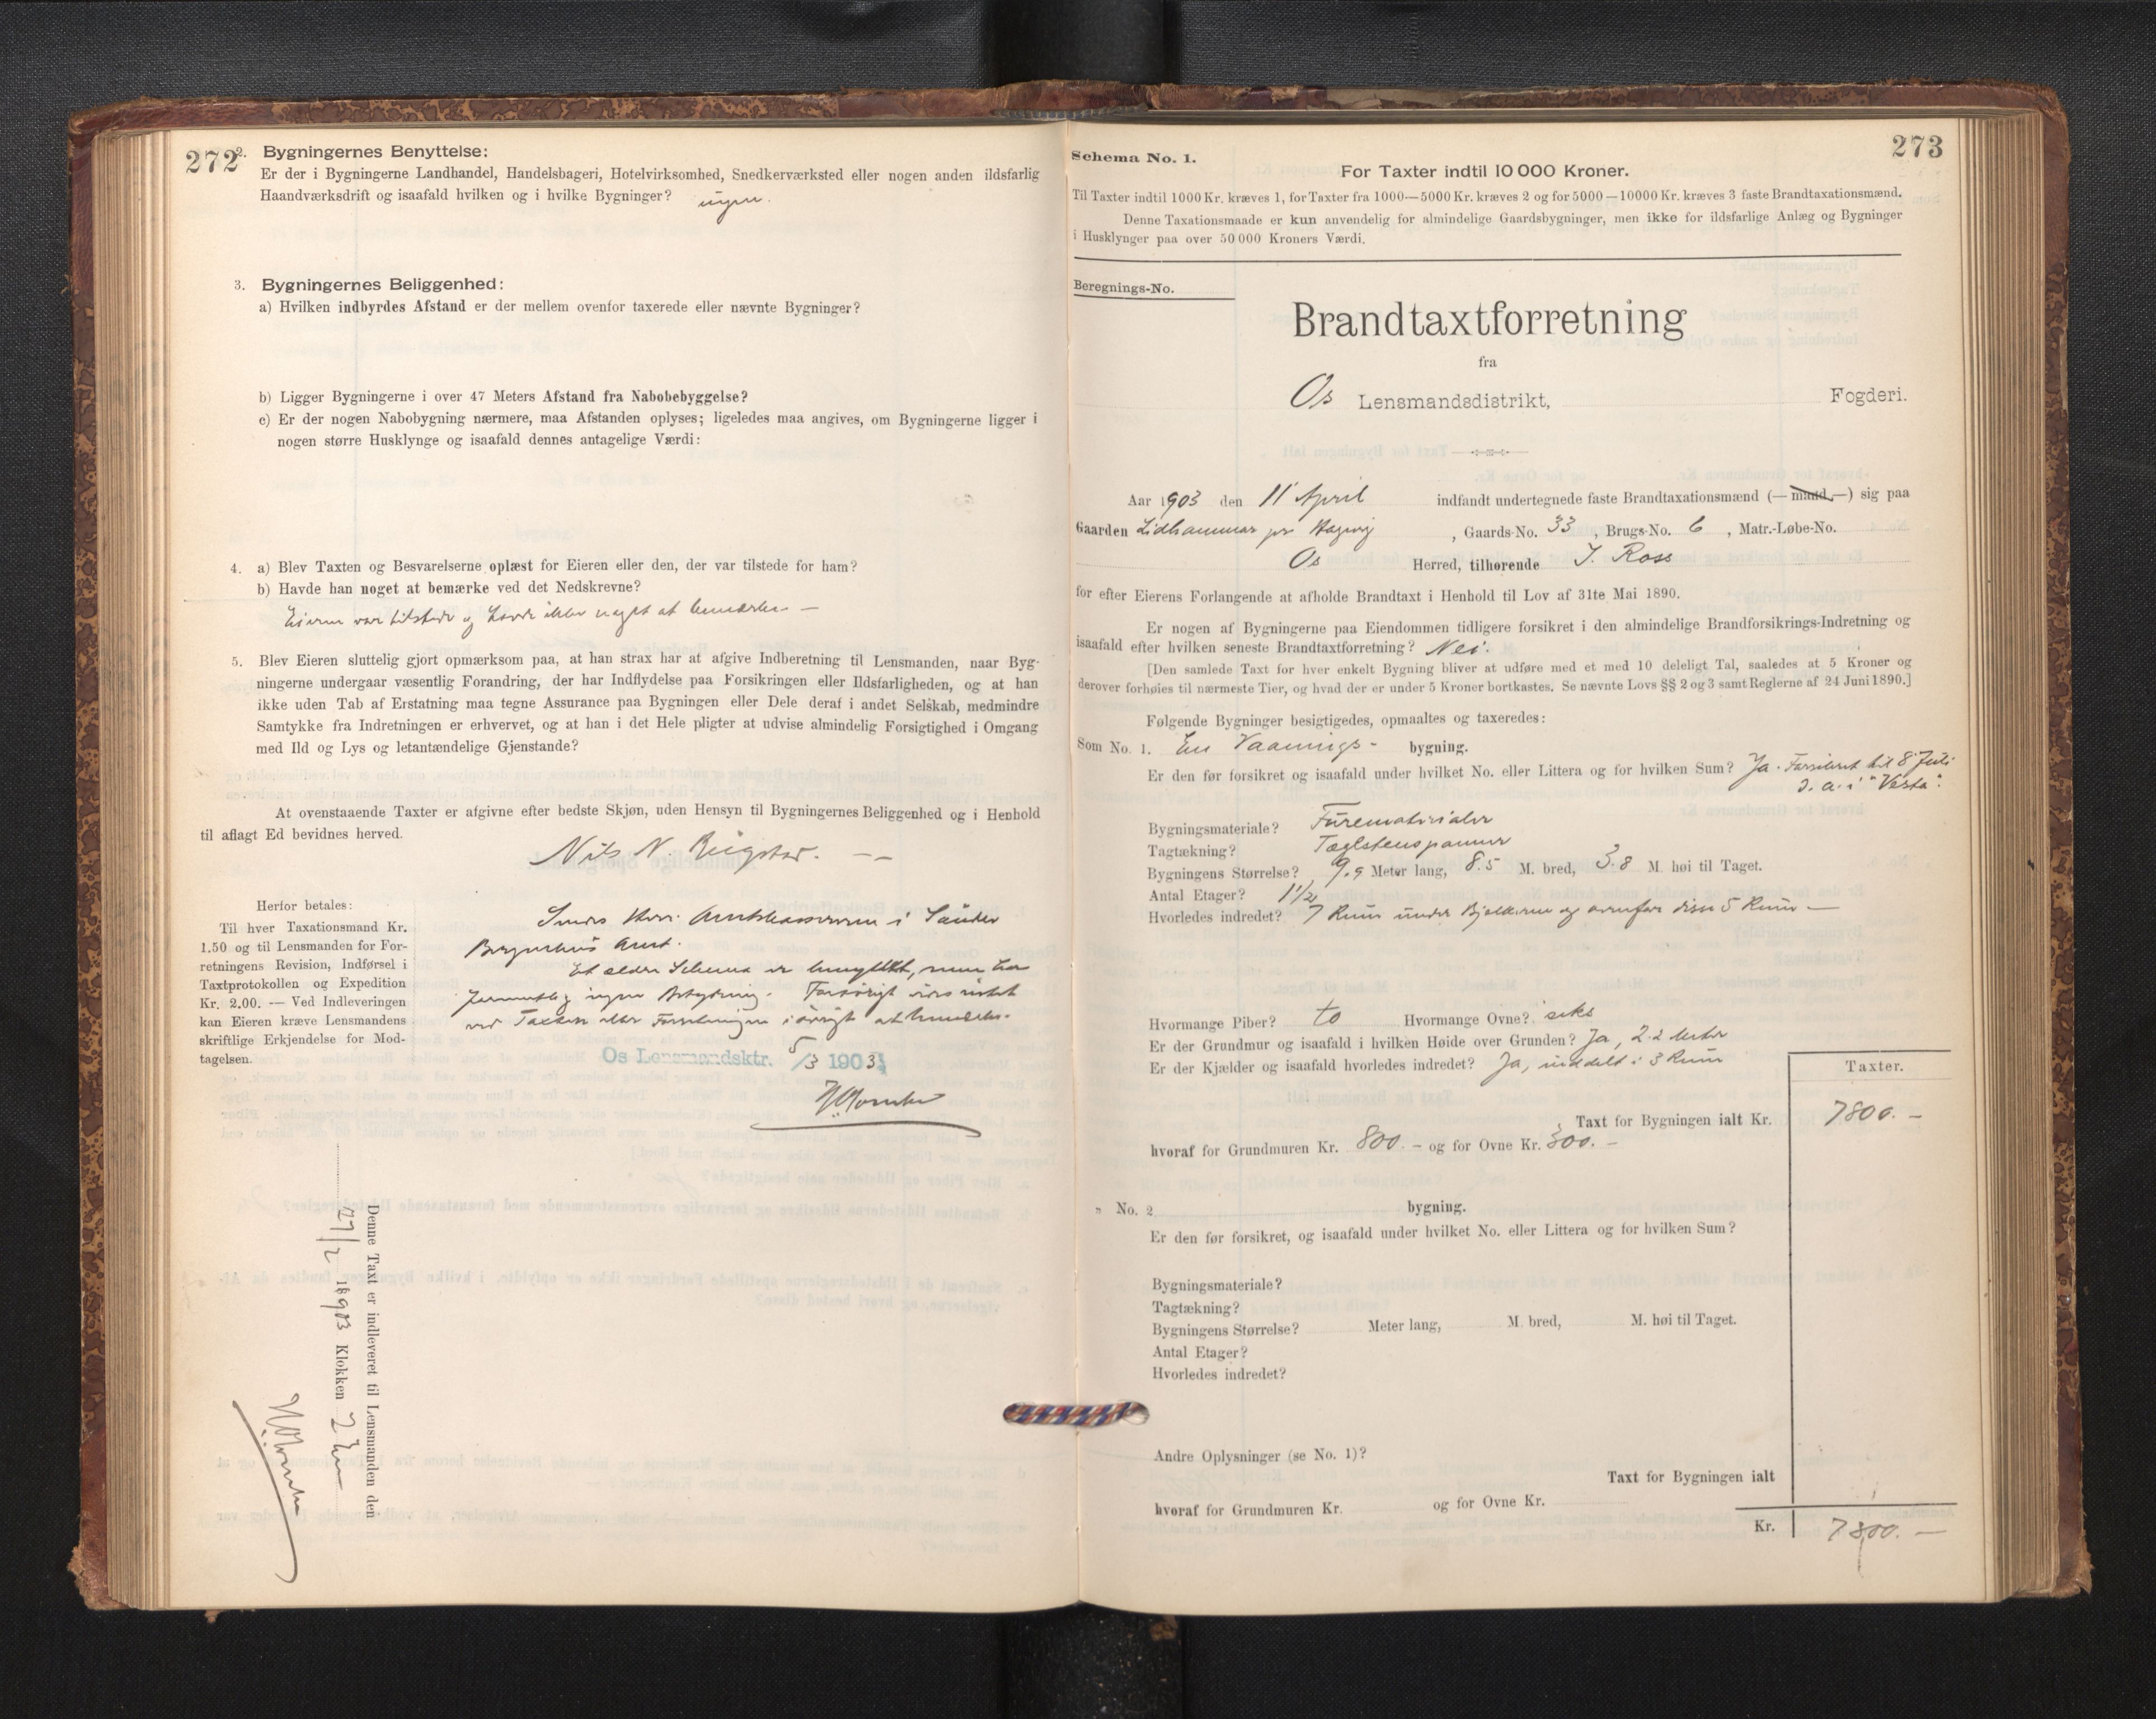 272
2. Bygningernes Benyttelse:
Er der i Bygningerne Landhandel, Handelsbageri, Hotelvirksomhed, Snedkerværksted eller nogen anden ildsfarlig
Haandværksdrift og isaafald hvilken og i hvilke Bygninger? ingen.
3. Bygningernes Beliggenhed:
a) Hvilken indbyrdes Afstand er der mellem ovenfor taxerede eller nævnte Bygninger?
b) Ligger Bygningerne i over 47 Meters Afstand fra Nabobebyggelse?
c) Er der nogen Nabobygning nærmere, maa Afstanden oplyses; ligeledes maa angives, om Bygningerne ligger i
nogen større Husklynge og isaafald dennes antagelige Værdi:
4. a) Blev Taxten og Besvarelserne oplæst for Eieren eller den, der var tilstede for ham?
b) Havde han noget at bemærke ved det Nedskrevne?
Eieren var tilstede og havde ikke noget at bemærke —
5. Blev Eieren sluttelig gjort opmærksom paa, at han strax har at afgive Indberetning til Lensmanden, naar Byg-
ningerne undergaar væsentlig Forandring, der har Indflydelse paa Forsikringen eller Ildsfarligheden, og at han
ikke uden Tab af Erstatning maa tegne Assurance paa Bygningen eller Dele deraf i andet Selskab, medmindre
Samtykke fra Indretningen er erhvervet, og at han i det Hele pligter at udvise almindelig Forsigtighed i Omgang
med Ild og Lys og letantændelige Gjenstande?
At ovenstaaende Taxter er afgivne efter bedste Skjøn, uden Hensyn til Bygningernes Beliggenhed og i Henhold
til aflagt Ed bevidnes herved.
Nils N.
Herfor betales:
Til hver Taxationsmand Kr.
1.50 og til Lensmanden for For-
retningens Revision, Indførsel i
Taxtprotokollen og Expedition
Kr. 2.00. — Ved Indleveringen
kan Eieren kræve Lensmandens
skriftlige Erkjendelse for Mod-
tagelsen.
Sendes Herr Amtskassereren i Søndre
Bergenhus Amt.
Et ældre Schema er benyttet, men har
ingen Betydning. Forøvrigt vides intet
ved Taxten eller Forretningen iøvrigt at bemærke.
Os Lensmandsktr. 5/3 1903
Denne Taxt er indleveret til Lensmanden den
27/2 1903 Klokken 2
273
Schema No. 1.
For Taxter indtil 10 000 Kroner.
Til Taxter indtil 1000 Kr. kræves 1, for Taxter fra 1000—5000 Kr. kræves 2 og for 5000—10000 Kr. kræves 3 faste Brandtaxationsmænd.
Denne Taxationsmaade er kun anvendelig for almindelige Gaardsbygninger, men ikke for ildsfarlige Anlæg og Bygninger
i Husklynger paa over 50 000 Kroners Værdi.
Beregnings-No.
Brandtaxtforretning
fra
Os Lensmandsdistrikt, Fogderi.
Aar 1903 den 11 April indfandt undertegnede faste Brandtaxationsmænd (— mand —) sig paa
Gaarden Lidhammar pr Hagvig, Gaards-No. 33, Brugs-No. 6, Matr.-Løbe-No.
Os Herred, tilhørende J. Ross
for efter Eierens Forlangende at afholde Brandtaxt i Henhold til Lov af 31te Mai 1890.
Er nogen af Bygningerne paa Eiendommen tidligere forsikret i den almindelige Brandforsikrings-Indretning og
isaafald efter hvilken seneste Brandtaxtforretning? Nei.
[Den samlede Taxt for hver enkelt Bygning bliver at udføre med et med 10 deleligt Tal, saaledes at 5 Kroner og
derover forhøies til nærmeste Tier, og hvad der er under 5 Kroner bortkastes. Se nævnte Lovs §§ 2 og 3 samt Reglerne af 24 Juni 1890.]
Følgende Bygninger besigtigedes, opmaaltes og taxeredes:
Som No. 1. En Vaanings- bygning.
Er den før forsikret og isaafald under hvilket No. eller Littera og for hvilken Sum? Ja. Forsikret til 8 Juli
d. a. i "Vesta".
Bygningsmateriale? Furematerialer
Tagtækning? Teglstenspanner
Bygningens Størrelse? 9.9 Meter lang, 8.5 M. bred, 3.8 M. høi til Taget.
Antal Etager? 1 1/2
Hvorledes indredet? 7 Rum under Bjelkerne og ovenfor disse 5 Rum —
Hvormange Piber? to Hvormange Ovne? seks
Er der Grundmur og isaafald i hvilken Høide over Grunden? Ja, 2.2 Meter
Er der Kjælder og isaafald hvorledes indredet? Ja, inddelt i 3 Rum
Taxter.
Taxt for Bygningen ialt Kr. 7800. —
hvoraf for Grundmuren Kr. 800. — og for Ovne Kr. 300. —
" No. 2 bygning.
Er den før forsikret, og isaafald under hvilket No. eller Littera og for hvilken Sum?
Bygningsmateriale?
Tagtækning?
Bygningens Størrelse? Meter lang, M. bred, M. høi til Taget.
Antal Etager?
Hvorledes indredet?
Andre Oplysninger (se No. 1)?
Taxt for Bygningen ialt
hvoraf for Grundmuren Kr. og for Ovne Kr.
Kr. 7800. —